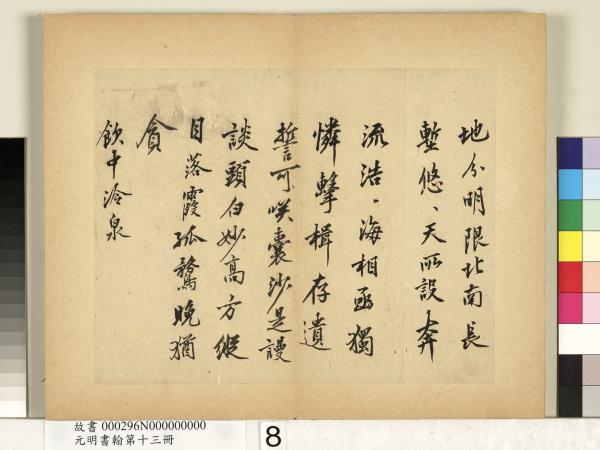 地分明限北南長
塹悠、天所設奔
流浩、海相函獨
憐擊楫存遺
誓可咲囊沙是謾
談頭白妙高方縱
目落霞孤鶩晚猶
貪
飲中冷泉
故書 000296N000000000
元明書翰第十三冊
8